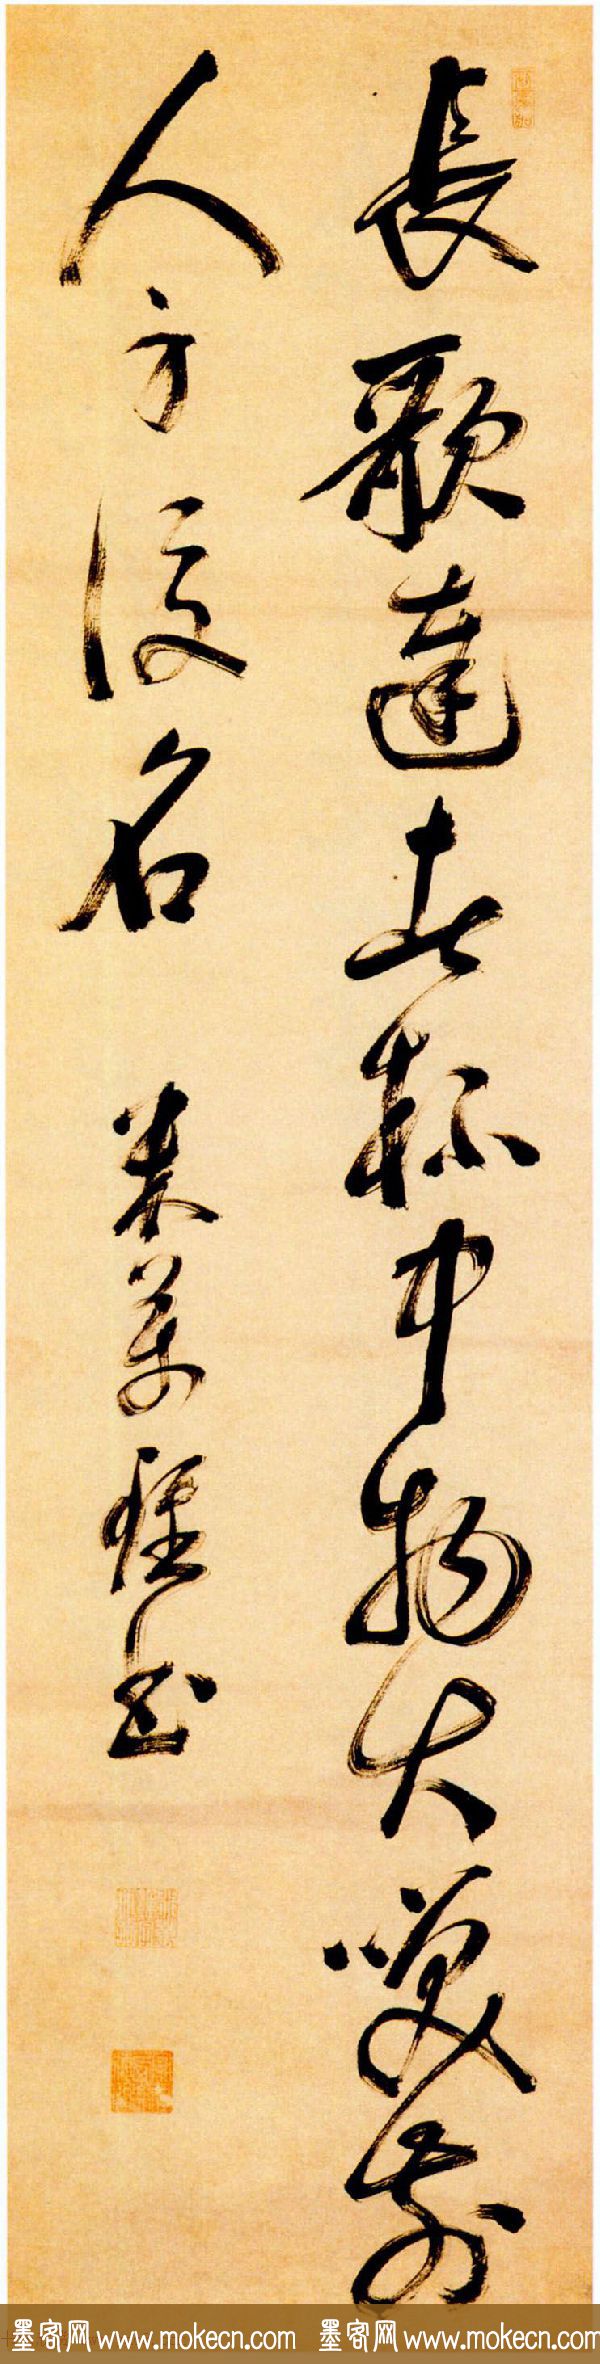 長歌達者杯中物大笑前
人身後名
米萬鍾書
墨客网 www.mokecn.com 墨客网 www.mokecn.com